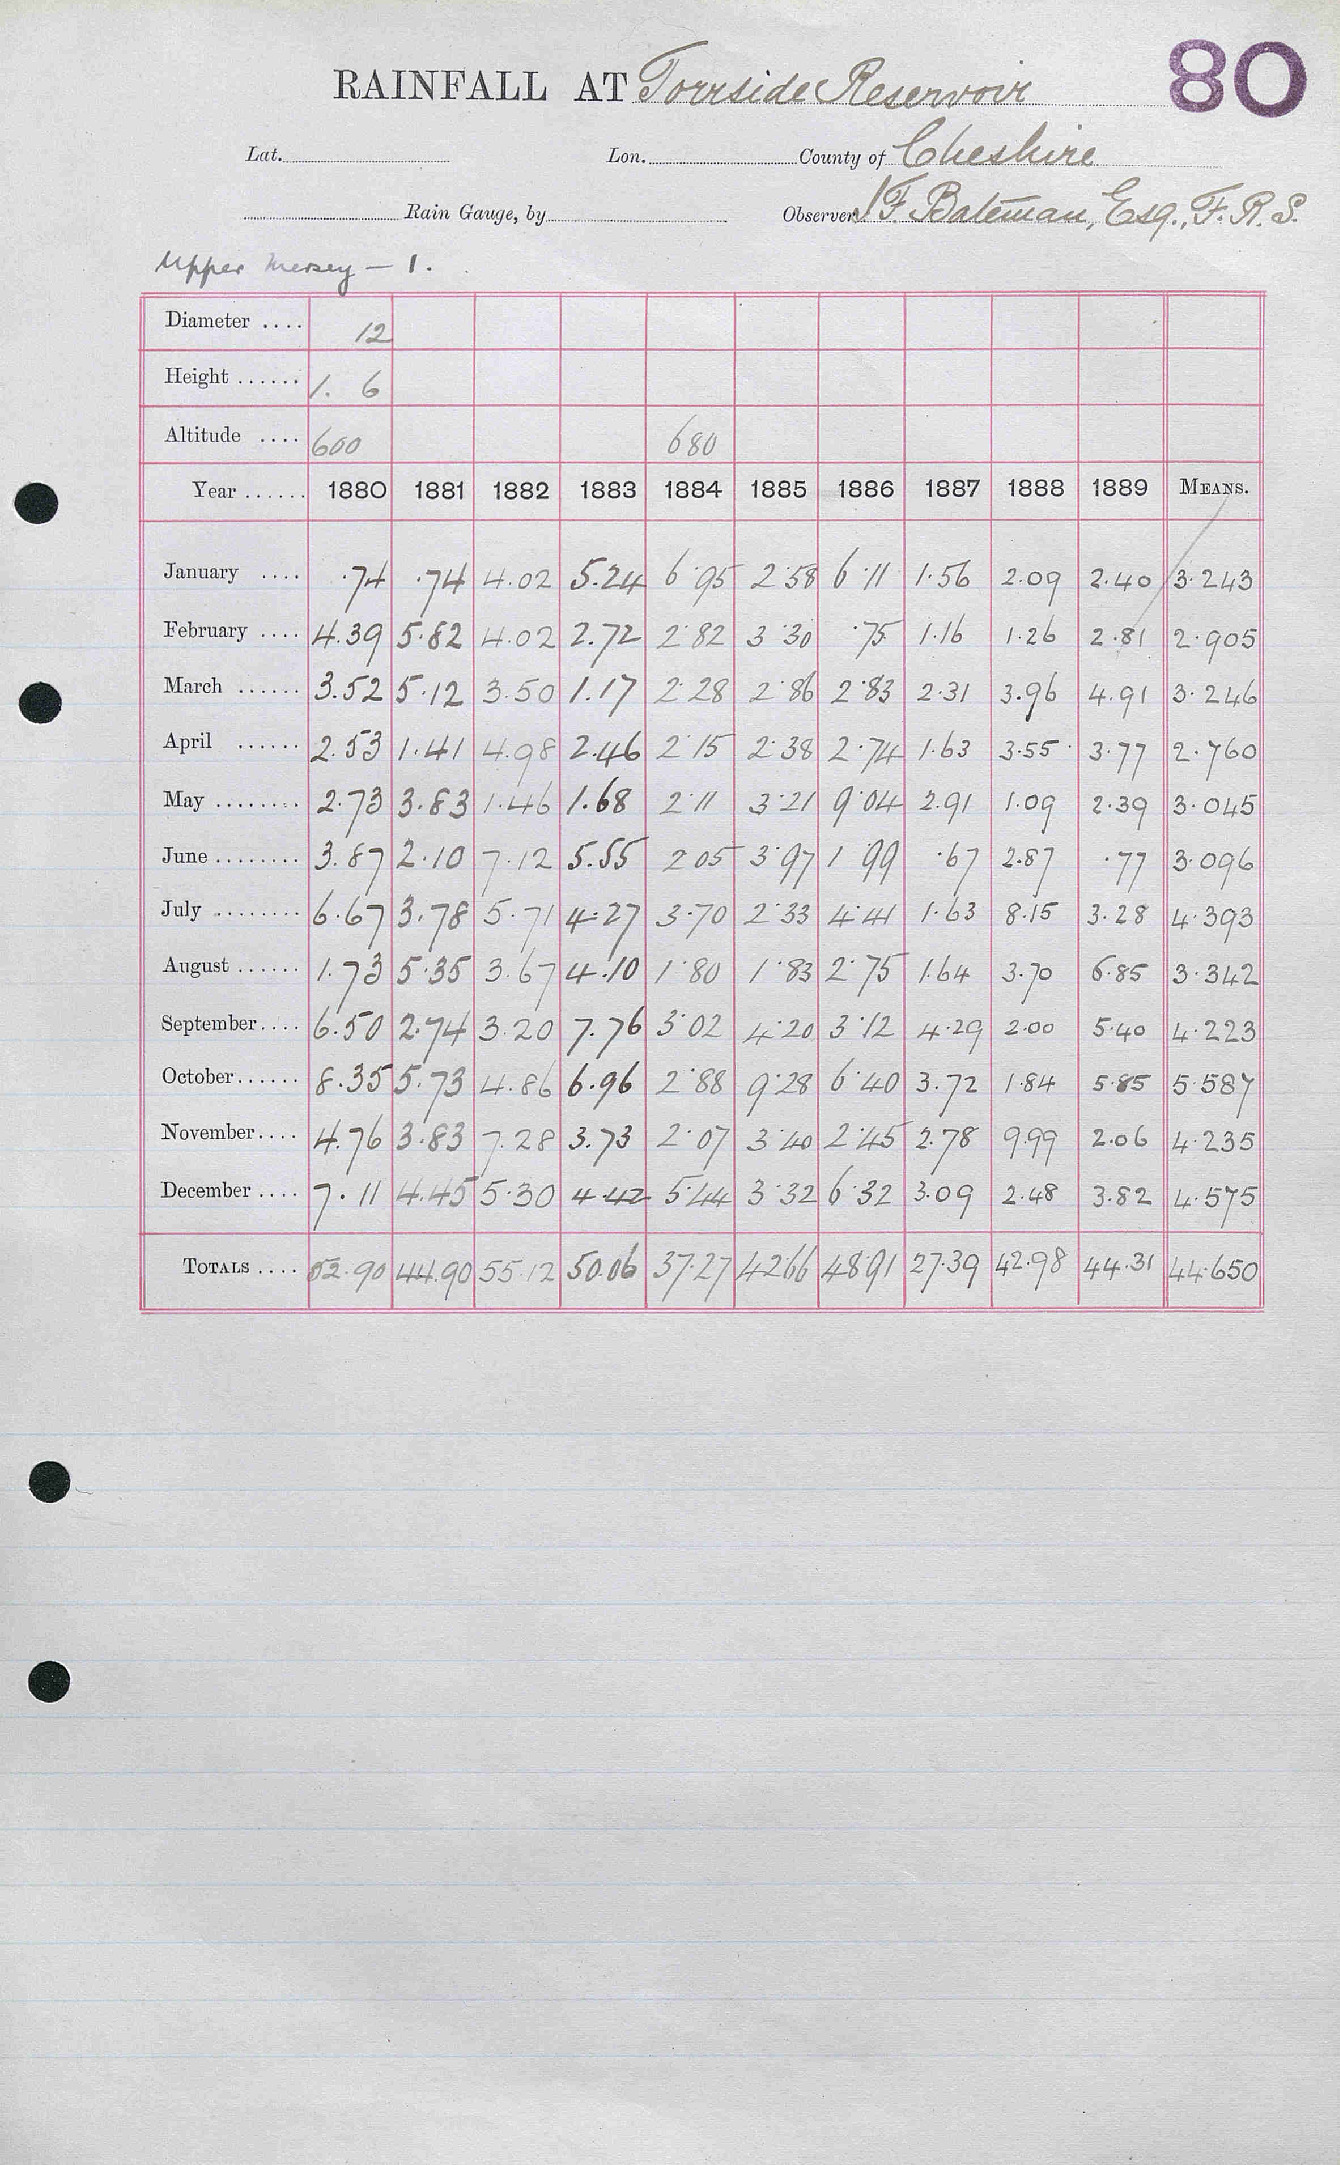 80
RAINFALL AT Torrside Reservoir
Lat. Lon. County of Cheshire
Rain Gauge, by Observer J F Bateman, Esq., F. R. S.
Upper Mersey — 1.
Diameter .... 12
Height ...... 1. 6
Altitude .... 600 680
Year ...... 1880 1881 1882 1883 1884 1885 1886 1887 1888 1889 MEANS.
January .... .74 .74 4.02 5.24 6.95 2.58 6.11 1.56 2.09 2.40 3.243
February .... 4.39 5.82 4.02 2.72 2.82 3.30 .75 1.16 1.26 2.81 2.905
March ...... 3.52 5.12 3.50 1.17 2.28 2.86 2.83 2.31 3.96 4.91 3.246
April ...... 2.53 1.41 4.98 2.46 2.15 2.38 2.74 1.63 3.55 3.77 2.760
May ........ 2.73 3.83 1.46 1.68 2.11 3.21 9.04 2.91 1.09 2.39 3.045
June ........ 3.87 2.10 7.12 5.55 2 05 3.97 1 99 .67 2.87 .77 3.096
July ........ 6.67 3.78 5.71 4.27 3.70 2.33 4.41 1.63 8.15 3.28 4.393
August ...... 1.73 5.35 3.67 4.10 1.80 1.83 2.75 1.64 3.70 6.85 3.342
September.... 6.50 2.74 3.20 7.76 3.02 4.20 3.12 4.29 2.00 5.40 4.223
October...... 8.35 5.73 4.86 6.96 2.88 9.28 6.40 3.72 1.84 5.85 5.587
November.... 4.76 3.83 7.28 3.73 2.07 3.40 2.45 2.78 9.99 2.06 4.235
December .... 7.11 4.45 5.30 4.42 5.44 3.32 6.32 3.09 2.48 3.82 4.575
TOTALS .... 52.90 44.90 55.12 50.06 37.27 42.66 48.91 27.39 42.98 44.31 44.650